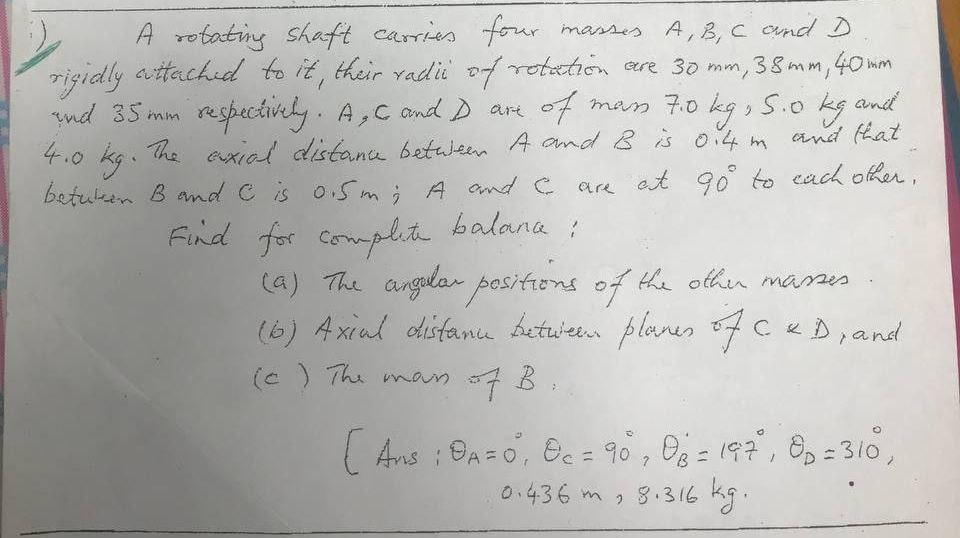 :)
A rotating shaft carries four masses A, B, C and D
rigidly attached to it, their radii of rotation are 30 mm, 38 mm, 40 mm
and 35 mm respectively. A, C and D are of mass 7.0 kg, 5.0 kg and
4.0 kg. The axial distance between A and B is 0.4 m and that
between B and C is 0.5 m; A and C are at 90° to each other.
Find for complete balance :
(a) The angular positions of the other masses.
(b) Axial distance between planes of C & D, and
(c) The mass of B.
[Ans : θA=0°, θC = 90°, θB = 197°, θD = 310°,
0.436 m, 8.316 kg.